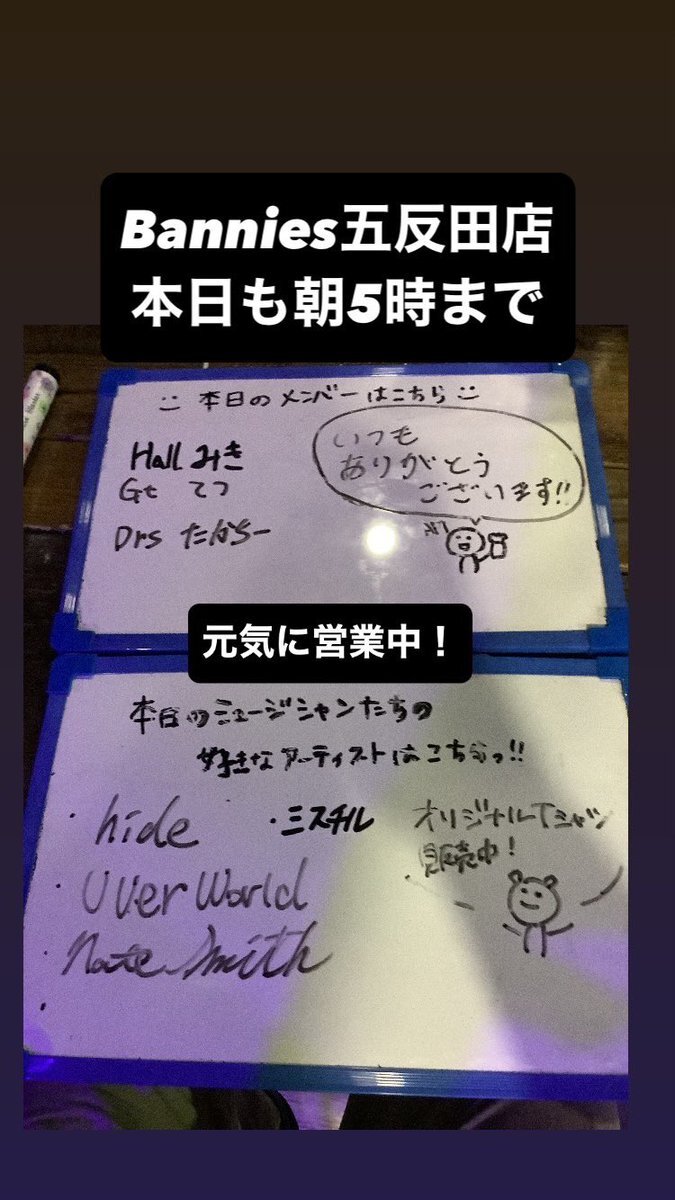 Bannies五反田店
本日も朝5時まで
本日のメンバーはこちら
Hall みき
Gt てつ
Drs たからー
いつも
ありがとう
ございます!!
元気に営業中！
本日のミュージシャンたちの
好きなアーティストはこちらっ!!
・hide
・ミスチル
・UVerWorld
・Nate Smith
・
オリジナルTシャツ
販売中!